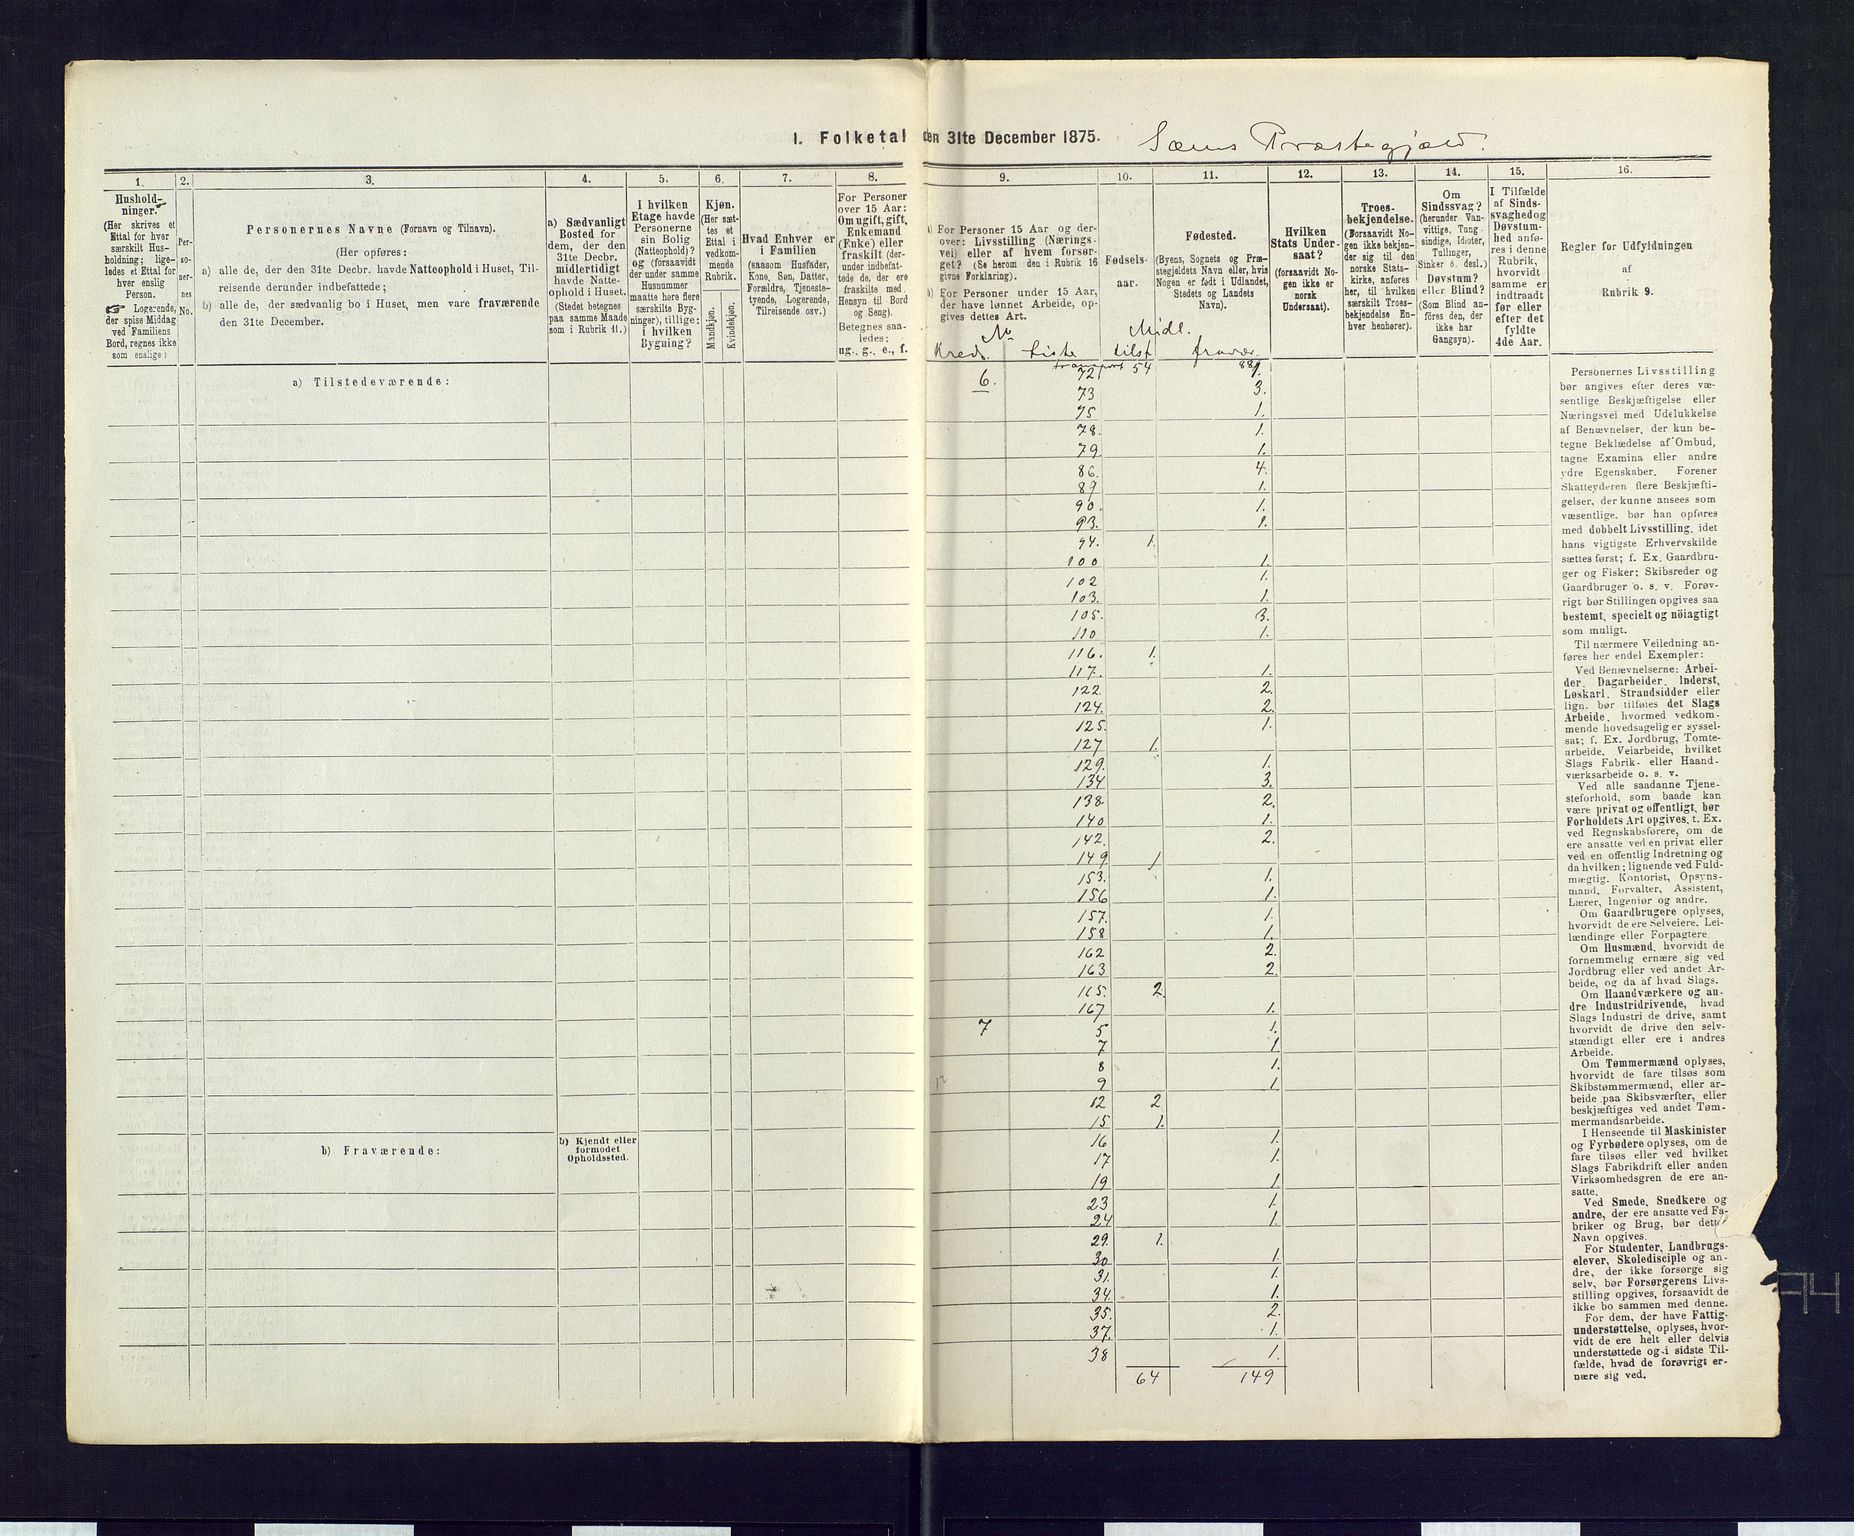 I. Folketal den 31te December 1875. Præstegjæld.
1.
2.
3.
4.
5.
6.
7.
8.
9.
10.
11.
12.
13.
14.
15.
16.
Hushold-
ninger.
(Her skrives et
Ettal for hver
særskilt Hus-
holdning; lige-
ledes et Ettal for
hver enslig
Person.
☞ Logerende,
der spise Middag
ved Familiens
Bord, regnes ikke
som enslige)
Per-
so-
ner-
nes
No.
Personernes Navne (Fornavn og Tilnavn).
(Her opføres:
a) alle de, der den 31te Decbr. havde Natteophold i Huset, Til-
reisende derunder indbefattede;
b) alle de, der sædvanlig bo i Huset, men vare fraværende
den 31te December.
a) Sædvanligt
Bosted for
dem, der den
31te Decbr.
midlertidigt
havde Natte-
ophold i Huset.
(Stedet betegnes
paa samme Maade
som i Rubrik 11.)
I hvilken
Etage havde
Personerne
sin Bolig
(Natteophold)?
og (forsaavidt
der under samme
Husnummer
maatte høre flere
særskilte Byg-
ninger), tillige:
i hvilken
Bygning?
Kjøn.
(Her sæt-
tes et
Ettal i
vedkom-
mende
Rubrik.
Mandkjøn.
Kvindekjøn.
Hvad Enhver er
i Familien
(saasom Husfader,
Kone, Søn, Datter,
Forældre, Tjeneste-
tyende, Logerende,
Tilreisende osv.)
For Personer
over 15 Aar:
Om ugift, gift,
Enkemand
(Enke) eller
fraskilt (der-
under indbefat-
tede de, der ere
fraskilte med
Hensyn til Bord
og Seng).
Betegnes saa-
ledes:
ug., g., e., f.
a) For Personer 15 Aar og der-
over: Livsstilling (Nærings-
vei) eller af hvem forsør-
get? (Se herom den i Rubrik 16
givne Forklaring).
b) For Personer under 15 Aar,
der have lønnet Arbeide, op-
gives dettes Art.
Fødsels-
aar.
Fødested.
(Byens, Sognets og Præ-
stegjeldets Navn eller, hvis
Nogen er født i Udlandet,
Stedets og Landets
Navn).
Hvilken
Stats Under-
saat?
(forsaavidt No-
gen ikke er
norsk
Undersaat).
Troes-
bekjendelse.
(Forsaavidt No-
gen ikke bekjen-
der sig til den
norske Stats-
kirke, anføres
her, til hvilken
særskilt Troes-
bekjendelse En-
hver henhører).
Om
Sindssvag?
(herunder Van-
vittige, Tung-
sindige, Idioter,
Tullinger,
Sinker o. desl.)
Døvstum?
eller Blind?
(Som Blind an-
føres den, der
ikke har
Gangsyn).
I Tilfælde
af Sinds-
svaghed og
Døvstum-
hed anfø-
res i denne
Rubrik,
hvorvidt
samme er
indtraadt
før eller
efter det
fyldte
4de Aar.
Regler for Udfyldningen
af
Rubrik 9.
No Midl.
Kreds. Liste tilst fravær.
transport 54 88
a) Tilstedeværende:
6. 72 1.
73 3.
75 1.
78. 1.
79 1.
86. 4.
89 1.
90. 1.
93. 1.
94. 1.
100 1.
102 1.
103. 1.
105. 3.
110 1.
116. 1.
117. 1.
122. 2.
124. 2.
125. 1.
127 1.
129. 1.
134 3.
138. 2.
140 1.
142. 2.
149 1
153. 1.
156 1.
157. 1.
158 1.
162 2.
163 2.
165. 2.
167 1.
7 5 1.
7 1.
8 1.
9 1.
12 2
15 1.
16 1.
17 1.
19 1.
23 1.
24 1.
29. 1.
30 1.
31. 1.
34. 1.
35. 2.
37. 1.
38 1.
64 149
b) Fraværende:
b) Kjendt eller
formodet
Opholdssted.
Personernes Livsstilling
bør angives efter deres væ-
sentlige Beskjæftigelse eller
Næringsvei med Udelukkelse
af Benævnelser, der kun be-
tegne Beklædelse af Ombud,
tagne Examina eller andre
ydre Egenskaber. Forener
Skatteyderen flere Beskjæfti-
gelser, der kunne ansees som
væsentlige, bør han opføres
med dobbelt Livsstilling, idet
hans vigtigste Erhvervskilde
sættes først; f. Ex. Gaardbru-
ger og Fisker; Skibsreder og
Gaardbruger o. s. v. Forøv-
rigt bør Stillingen opgives saa
bestemt, specielt og nöiagtigt
som muligt.
Til nærmere Veiledning an-
føres her endel Exempler:
Ved Benævnelserne: Arbei-
der, Dagarbeider, Inderst,
Løskarl, Strandsidder eller
lign. bør tilføies det Slags
Arbeide, hvormed vedkom-
mende hovedsagelig er syssel-
sat; f. Ex. Jordbrug, Tomte-
arbeide, Veiarbeide, hvilket
Slags Fabrik- eller Haand-
værksarbeide o. s. v.
Ved alle saadanne Tjene-
steforhold, som baade kan
være privat og offentligt, bør
Forholdets Art opgives, t. Ex.
ved Regnskabsførere, om de
ere ansatte ved en privat eller
ved en offentlig Indretning og
da hvilken; lignende ved Fuld-
mægtig, Kontorist, Opsyns-
mand, Forvalter, Assistent,
Lærer, Ingeniør og andre.
Om Gaardbrugere oplyses,
hvorvidt de ere Selveiere, Lei-
lændinge eller Forpagtere.
Om Husmænd, hvorvidt de
fornemmelig ernære sig ved
Jordbrug eller ved andet Ar-
beide, og da af hvad Slags.
Om Haandværkere og an-
dre Industridrivende, hvad
Slags Industri de drive, samt
hvorvidt de drive den selv-
stændigt eller ere i andres
Arbeide.
Om Tømmermænd oplyses,
hvorvidt de fare tilsøs som
Skibstømmermænd, eller ar-
beide paa Skibsværfter, eller
beskjæftiges ved andet Tøm-
mermandsarbeide.
I Henseende til Maskinister
og Fyrbødere oplyses, om de
fare tilsøs eller ved hvilket
Slags Fabrikdrift eller anden
Virksomhedsgren de ere an-
satte.
Ved Smede, Snedkere og
andre, der ere ansatte ved Fa-
briker og Brug, bør dettes
Navn opgives.
For Studenter, Landbrugs-
elever, Skoledisciple og an-
dre, der ikke forsørge sig
selv, bør Forsørgerens Livs-
stilling opgives, forsaavidt de
ikke bo sammen med denne.
For dem, der have Fattig-
understøttelse, oplyses, hvor-
vidt de ere helt eller delvis
understøttede og i sidste Til-
fælde, hvad de forøvrigt er-
nære sig ved.